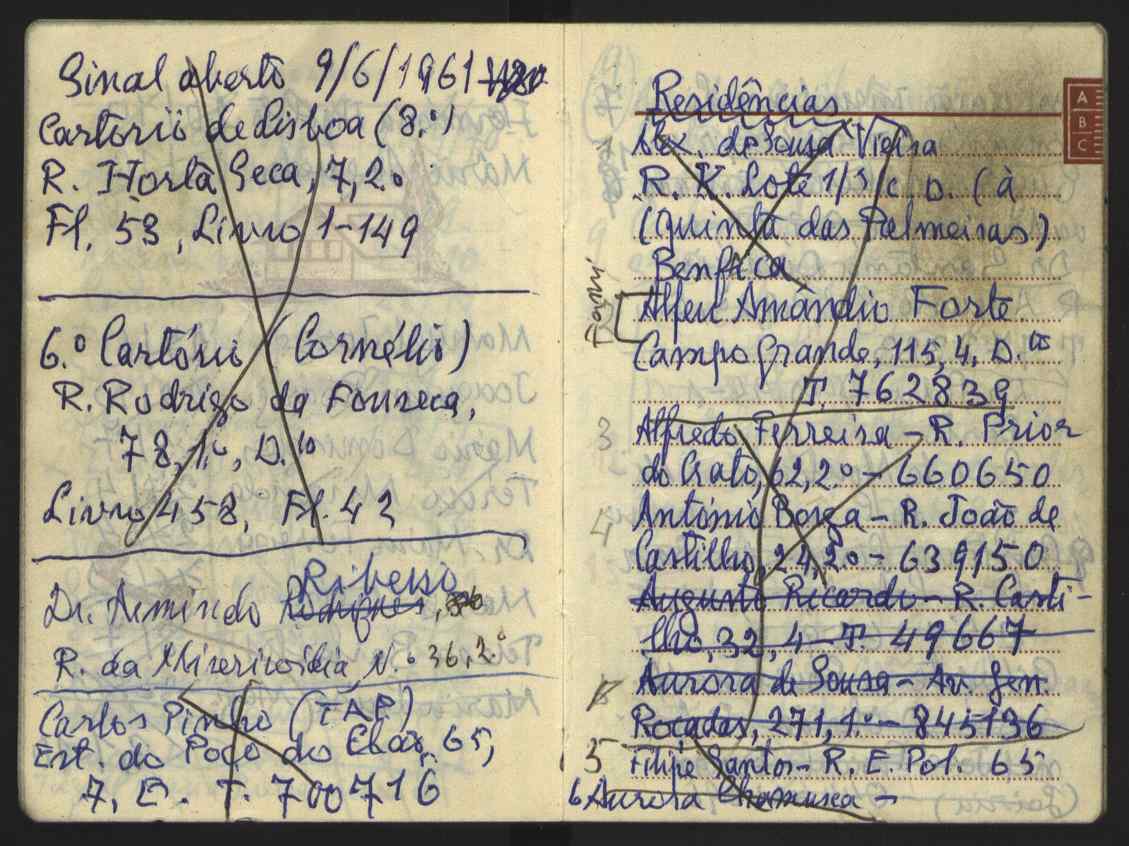 Sinal aberto 9/6/1961
Cartório de Lisboa (8.º)
R. Horta Seca, 7, 2.º
Fl. 53, Livro 1-149
6.º Cartório (Cornélio)
R. Rodrigo da Fonseca,
78, 1.º, D.to
Livro 458, Fl. 42
Ribeiro
Dr. Armindo Rodrigues,
R. da Misericórdia, N.º 36, 2.º
Carlos Pinho (TAP)
Est. do Poço do Chão, 65,
7, E. T. 700716
Residências
A
B
C
Alex. de Sousa Vieira
R. K. Lote 1/3/c. D. (à
(Quinta das Palmeiras)
Benfica
Alfeu Amândio Forte
Campo Grande, 115, 4. D.to
T. 762839
3 Alfredo Ferreira - R. Prior
do Crato, 62, 2.º - 660650
4 António Borga - R. João de
Castilho, 24, 2.º - 639150
Augusto Ricardo - R. Casti-
lho, 32, 4 - T. 49667
Aurora de Sousa - Av. Gen.
Roçadas, 271, 1.º - 845136
5 Filipe Santos - R. E. Pol. 65
6 Aurora Chamusca -